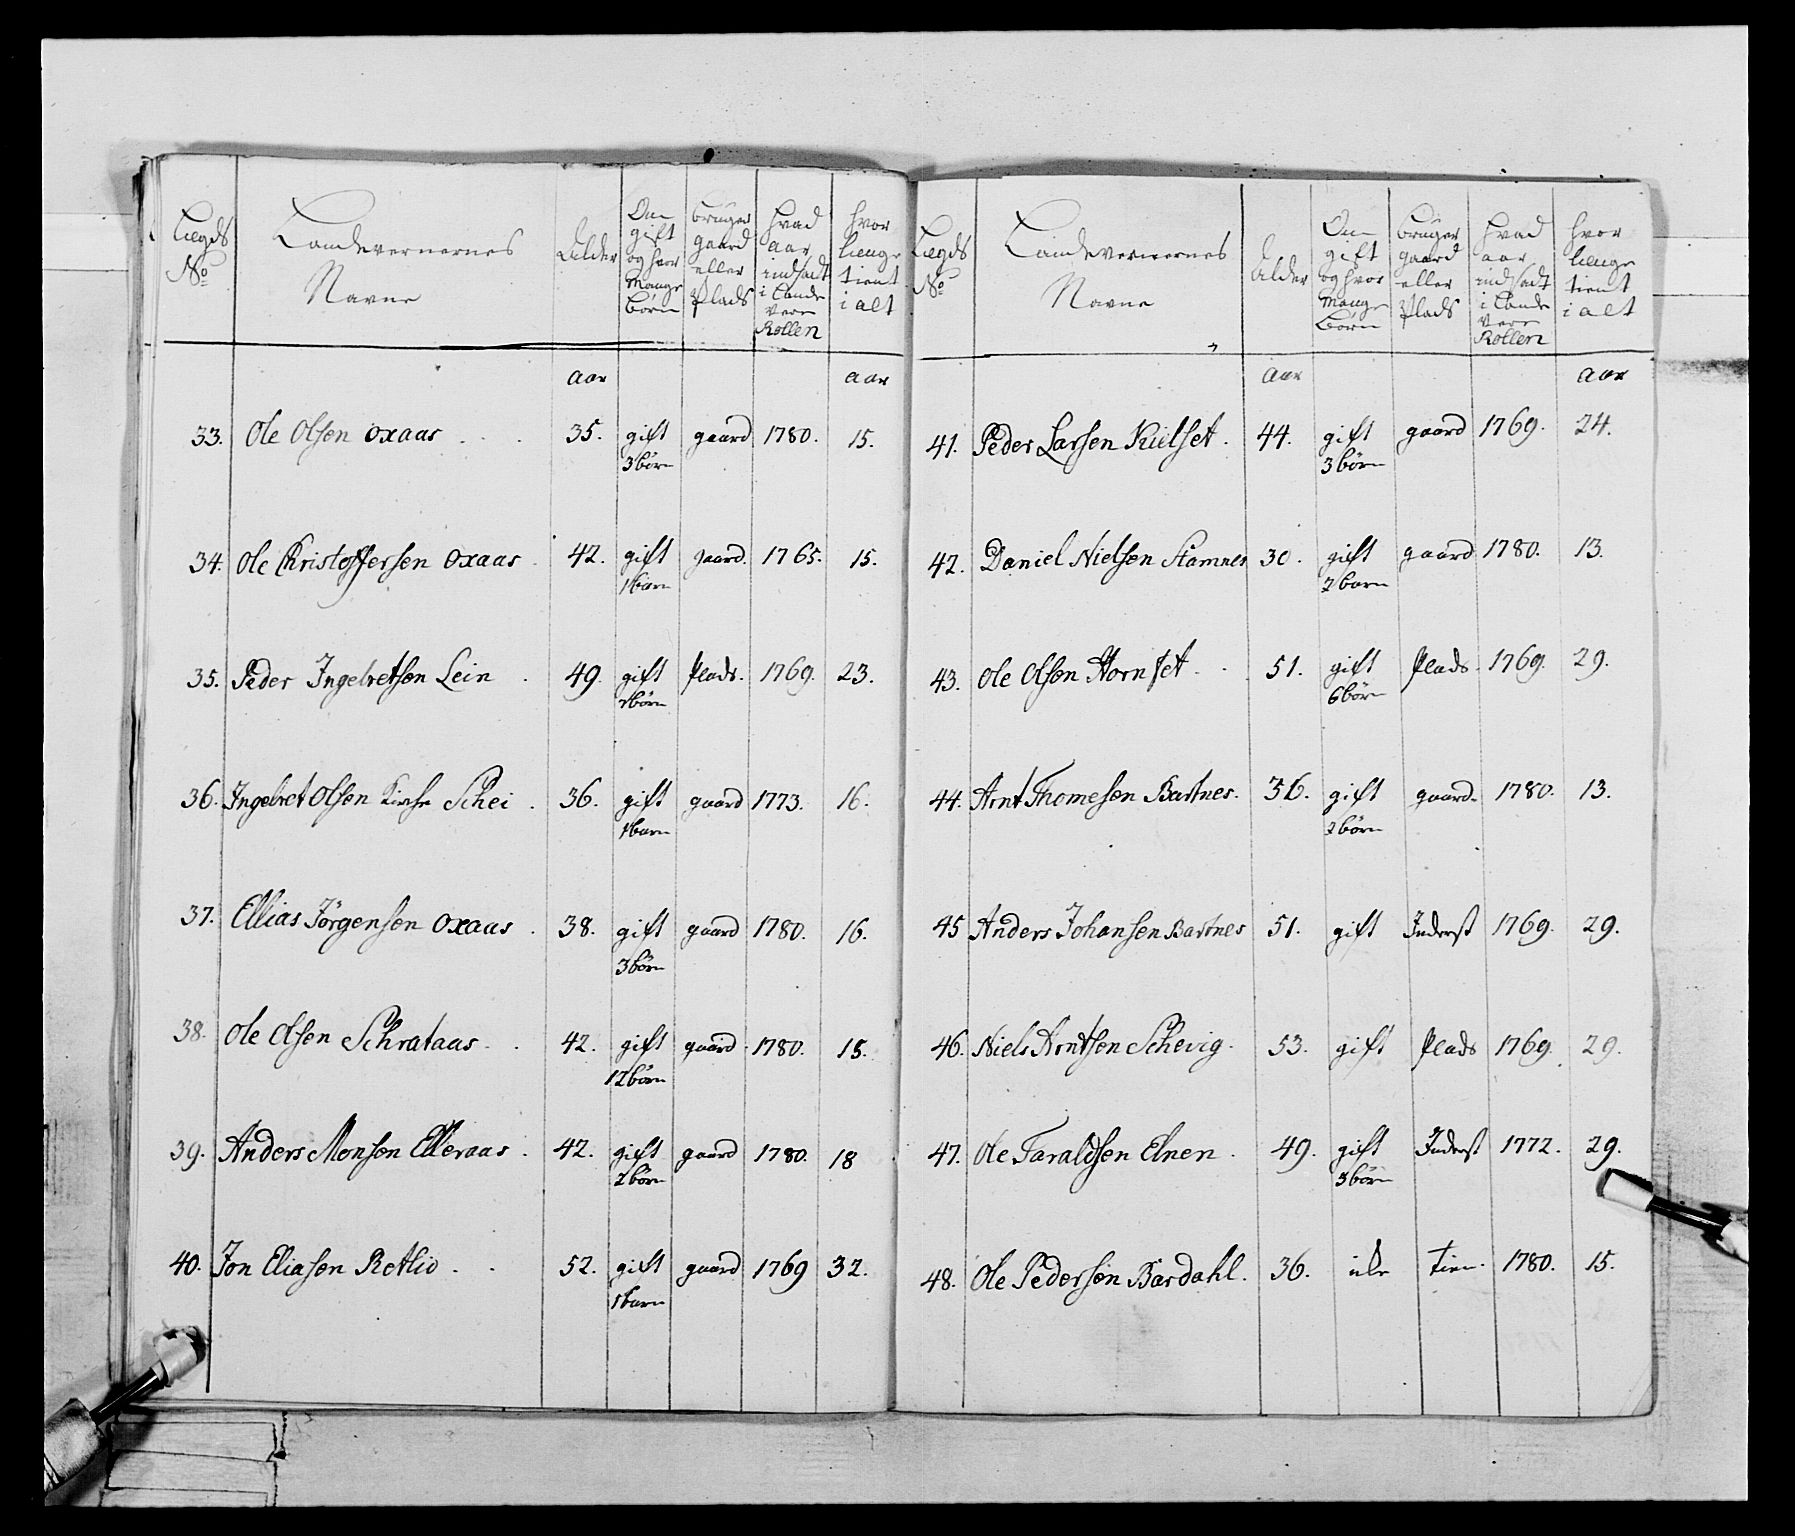 Lægds No | Landeværnernes Navne | Alder | Om gift og hvor Mange Börn | bruger gaard eller Plads | hvad aar indsadt i Lande vern Rollen | hvor længe tient i alt
aar | aar
33. Ole Olsen oxaas . . . 35. gift 3 börn gaard 1780. 15.
34. Ole Christoffersen oxaas . 42. gift 1 barn gaard. 1765. 15.
35. Peder Ingebretsen Lein . 49. gift börn Plads. 1769. 23.
36. Ingebret Olsen Schei . 36. gift 1 barn gaard 1773. 16.
37. Ellias Jörgensen oxaas . 38. gift 3 börn gaard 1780. 16.
38. Ole Olsen Schrataas . . 42. gift 12 börn gaard . 1780. 15.
39. Anders Monsen Elleraas . 42. gift 2 börn gaard 1780. 18
40. Jon Eliasen Rotlio . . 52. gift 1 barn gaard 1769 32.
Lægds No | Landeværnernes Navne | Alder | Om gift og hvor Mange Börn | bruger gaard eller Plads | hvad aar indsadt i Lande vern Rollen | hvor længe tient i alt
aar | aar
41. Peder Larsen Kielset . 44. gift 3 börn gaard 1769. 24.
42. Daniel Nielsen Stamnes 30. gift 2 barn gaard 1780. 13.
43. Ole Olsen Hornset . . 51. gift 6 börn Plads . 1769. 29.
44. Arnt Thomesen Bartnes. 36. gift 2 börn gaard. 1780. 13.
45 Anders Johansen Bartnes 51. gift Inderst 1769. 29.
46. Niels Arntsen Schevig . 53. gift Plads 1769. 29.
47. Ole Taraldsen Elnen . 49. gift börn Inderst 1772. 29.
48. Ole Pedersen Bardahl. 36. tien. 1780. 15.